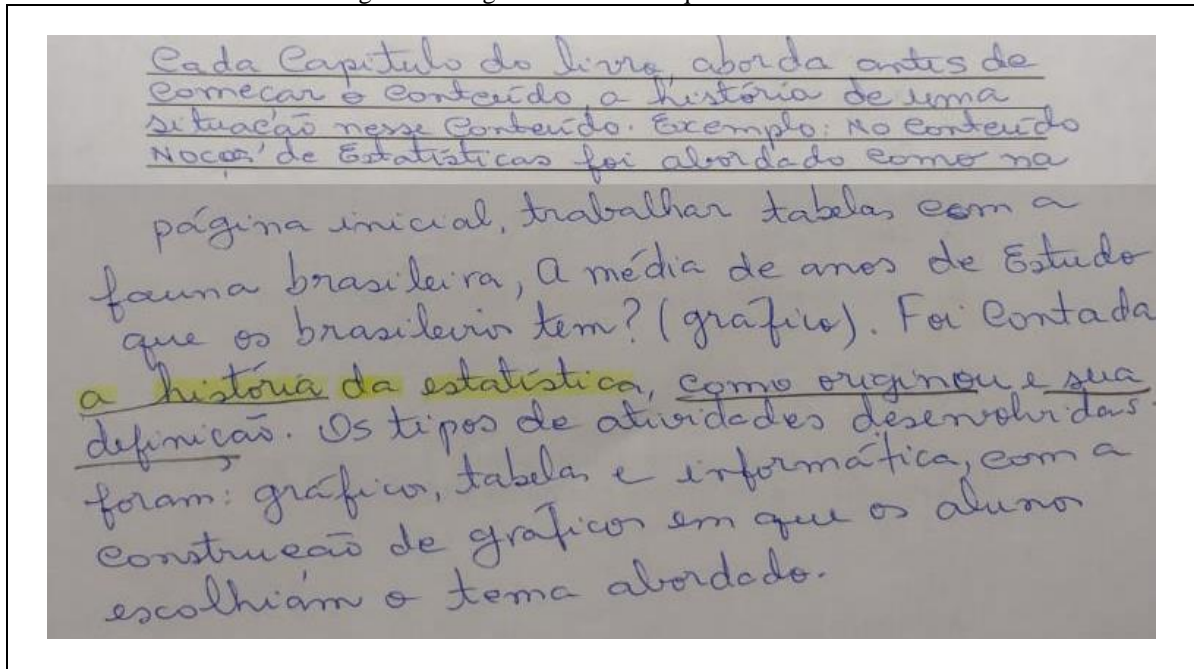 Cada Capitulo do livro, aborda antes de
começar o conteúdo, a história de uma
situação nesse Conteúdo. Exemplo: No Conteúdo
Noções de Estatísticas foi abordado como na
página inicial, trabalhar tabelas com a
fauna brasileira, a média de anos de Estudo
que os brasileiros tem? (gráfico). Foi Contada
a história da estatística, como originou e sua
definição. Os tipos de atividades desenvolvidas
foram: gráficos, tabelas e informática, com a
construção de gráficos em que os alunos
escolhiam o tema abordado.